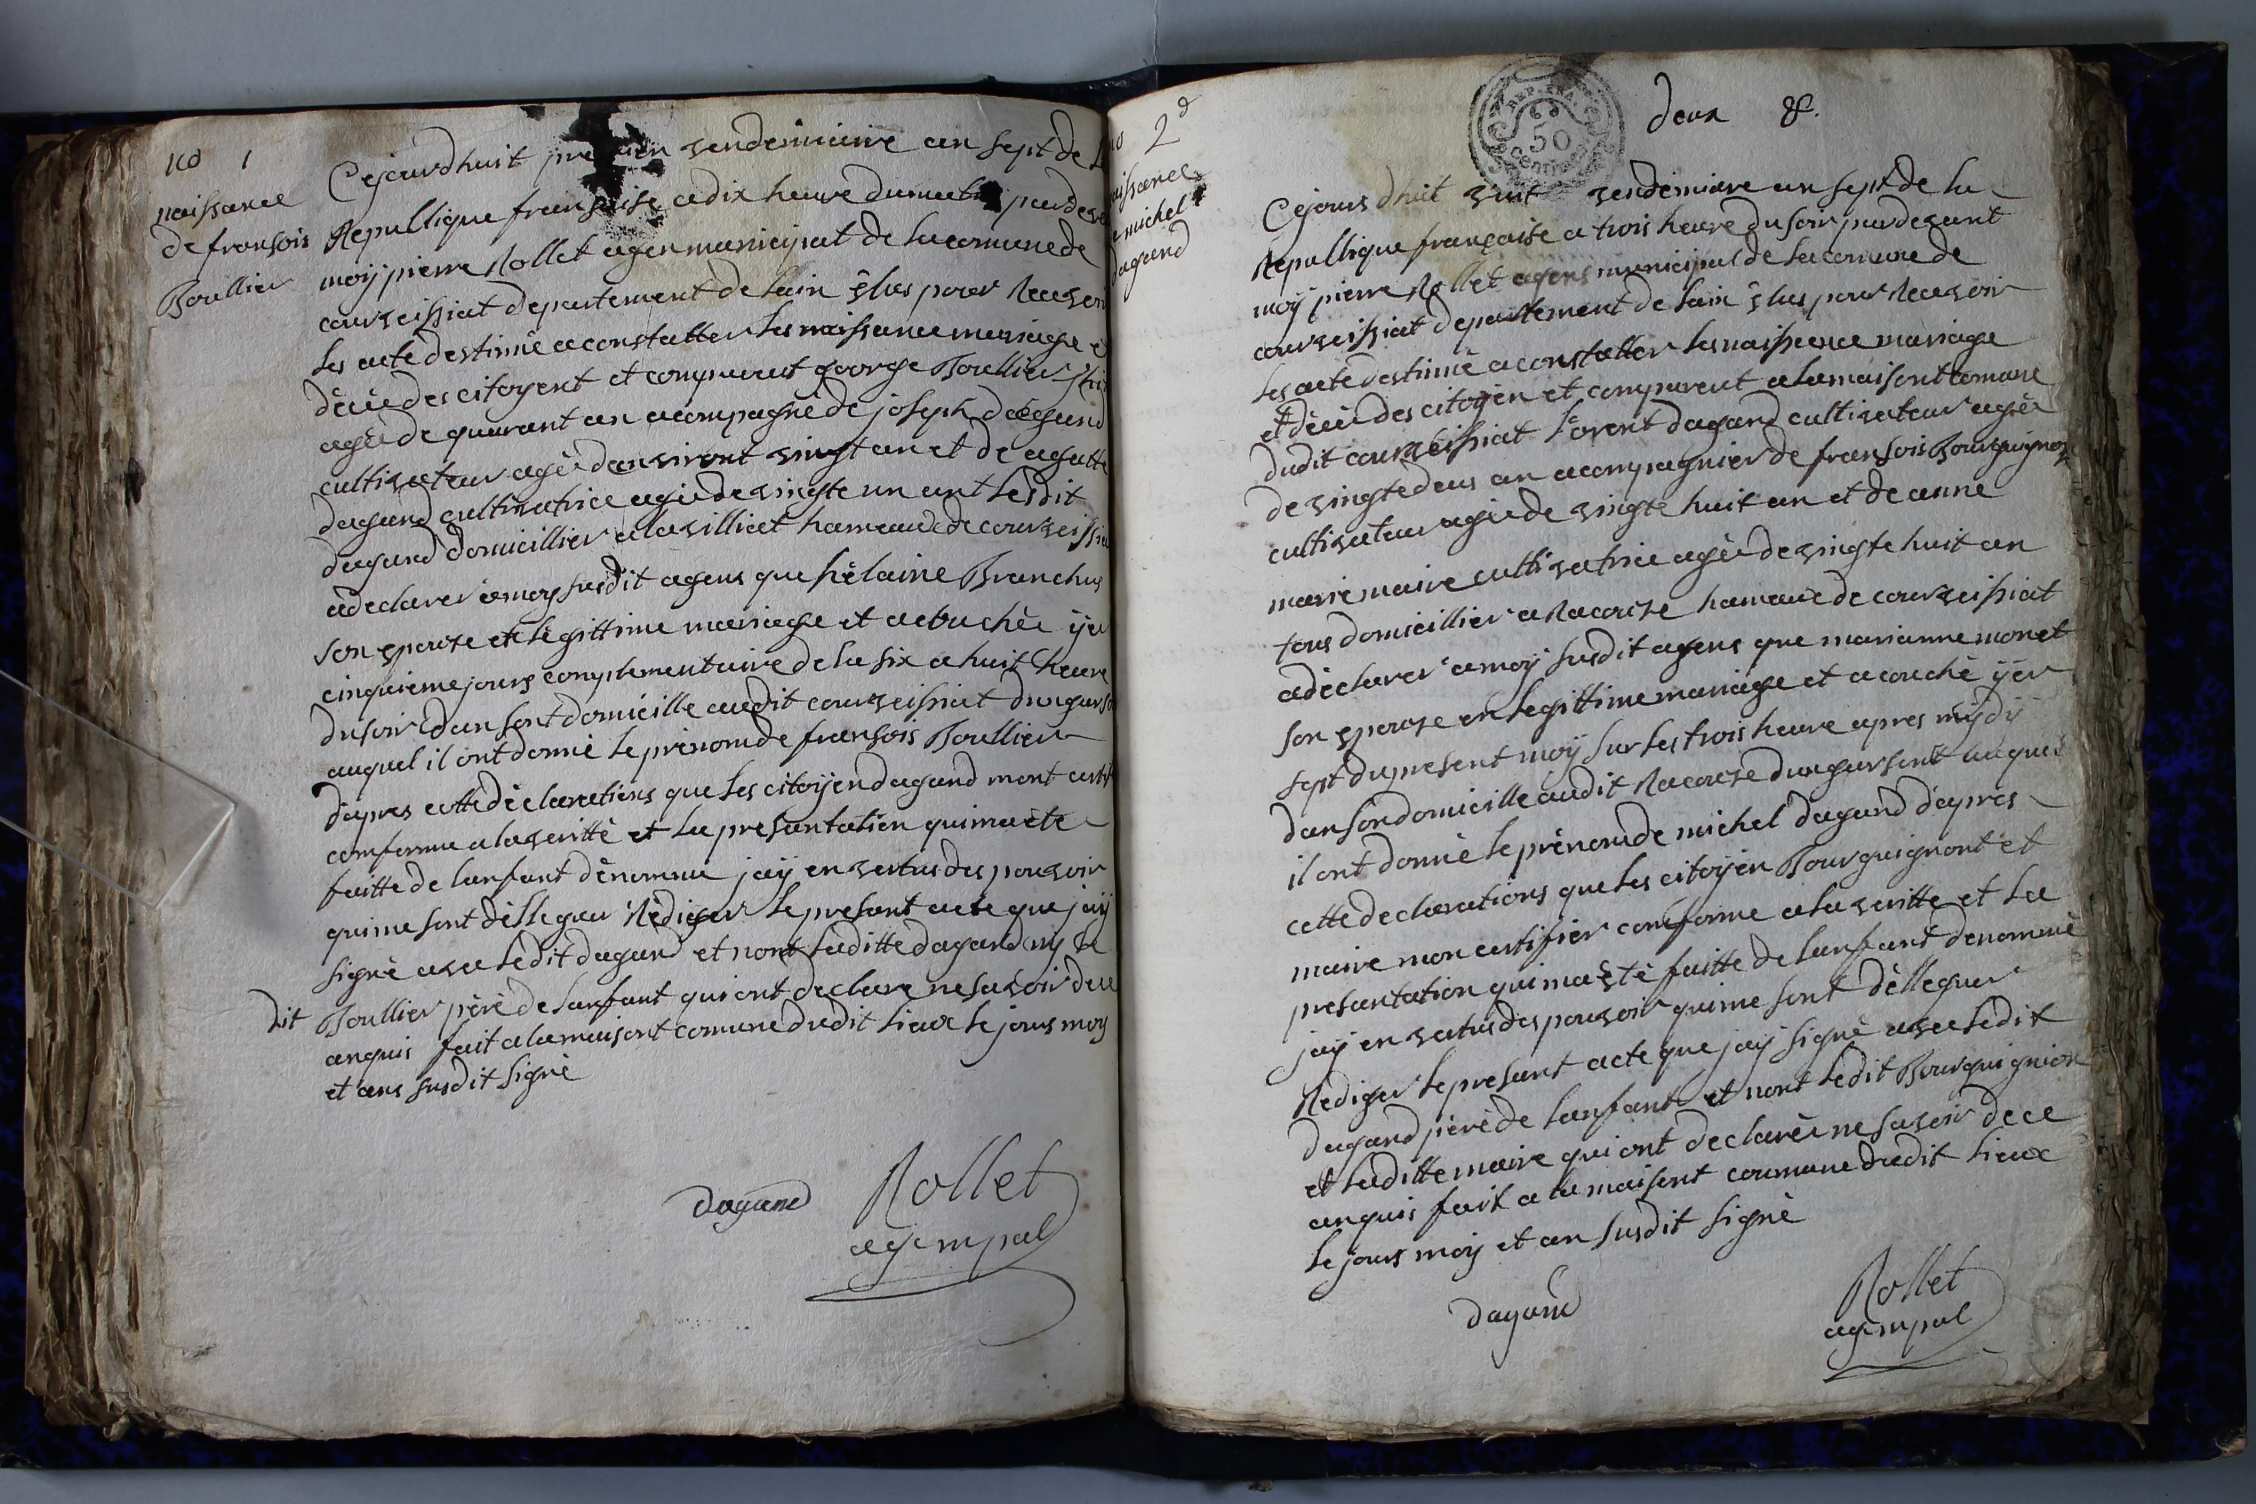 no 1
naissance
de fransois
Boullier
Cejourdhuit premier vendemiaire an sept de
Republlique fransaise a dix heure du matin
moij pierre Rollet agen municipal de la comune de
courveissiat departement de lain ēlus pour
les acte destinné a constatter les naissance mariage
décéé des citoyent et comparut george Boullier
agée de quarant an acompagné de joseph dagand
cultivateur agée danviront vingt an et de agatte
dagand cultivatrice agée de vingte un ant lesdit
dagand domicillier a la villiat hameaude
a declarer a moy susdit agens que hélaine Branchus
son epouse et légittime mariage et a
cinquieme jours complementaire de la six a huit heure
du soir dan sont domicille audit courveissiat dun
auquel il ont donné le prénom de fransois Boullier
dapres cette déclarations que les citoijen dagand mont
comforme a la veritté et la presantation qui ma ete
faitte de lanfant dénommé jaij en vertus des pouvoir
qui me sont délleguer Rédiger le presant acte que jaij
signé avec ledit dagand et nont laditte dagand nij le
dit Boullier père de lanfant qui ont declare ne savoir de ce
anquis fait a la maisont comune dudit lieux le jours moy
et ans susdit signé
dagand
Rollet
agempal
no 2d
naissance
de michel
dagand
deux &.
REP. FRA.
50
Centimes
Cejours dhuit vendemiare an sept de la
Republlique française a trois heure du soir pardevant
moij pierre Rollet agens municipal de la comune de
courveissiat departement de lain ēlus pour Recevoir
les acte destinné a constatter les naissance mariage
et décéé des citoijen et comparent a la maisont comune
dudit courveissiat lorent dagand cultivateur agée
de vingtedeus an acompagnier de fransois Bourguignon
cultivateur agée de vingte huit an et de anne
marie maire cultivatrice agée de vingte huit an
tous domicillier a Racouse hamaue de courveissiat
a déclarer a moij susdit agens que marianne monet
son epouse en legittime mariage et a couché ijer
sept du present moij sur les trois heure apres mijdij
dan son domicille audit Racouse dun garsont auquel
il ont donné le prénom de michel dagand dapres
cette declarations que les citoijen Bourguignont et
maire mon certifier comforme a la veritte et la
presantation qui ma été faitte de lanfant denommé
jaij en vertus des pouvoir qui me sont délleguer
Rediger le presant acte que jaij signé avec ledit
dagand père de lanfant et nont ledit Bourguignion
et laditte maire qui ont declarée ne savoir de ce
anquis fait a la maisont coumune dudit lieux
le jours moij et an susdit signé
dagand
Rollet
agempal